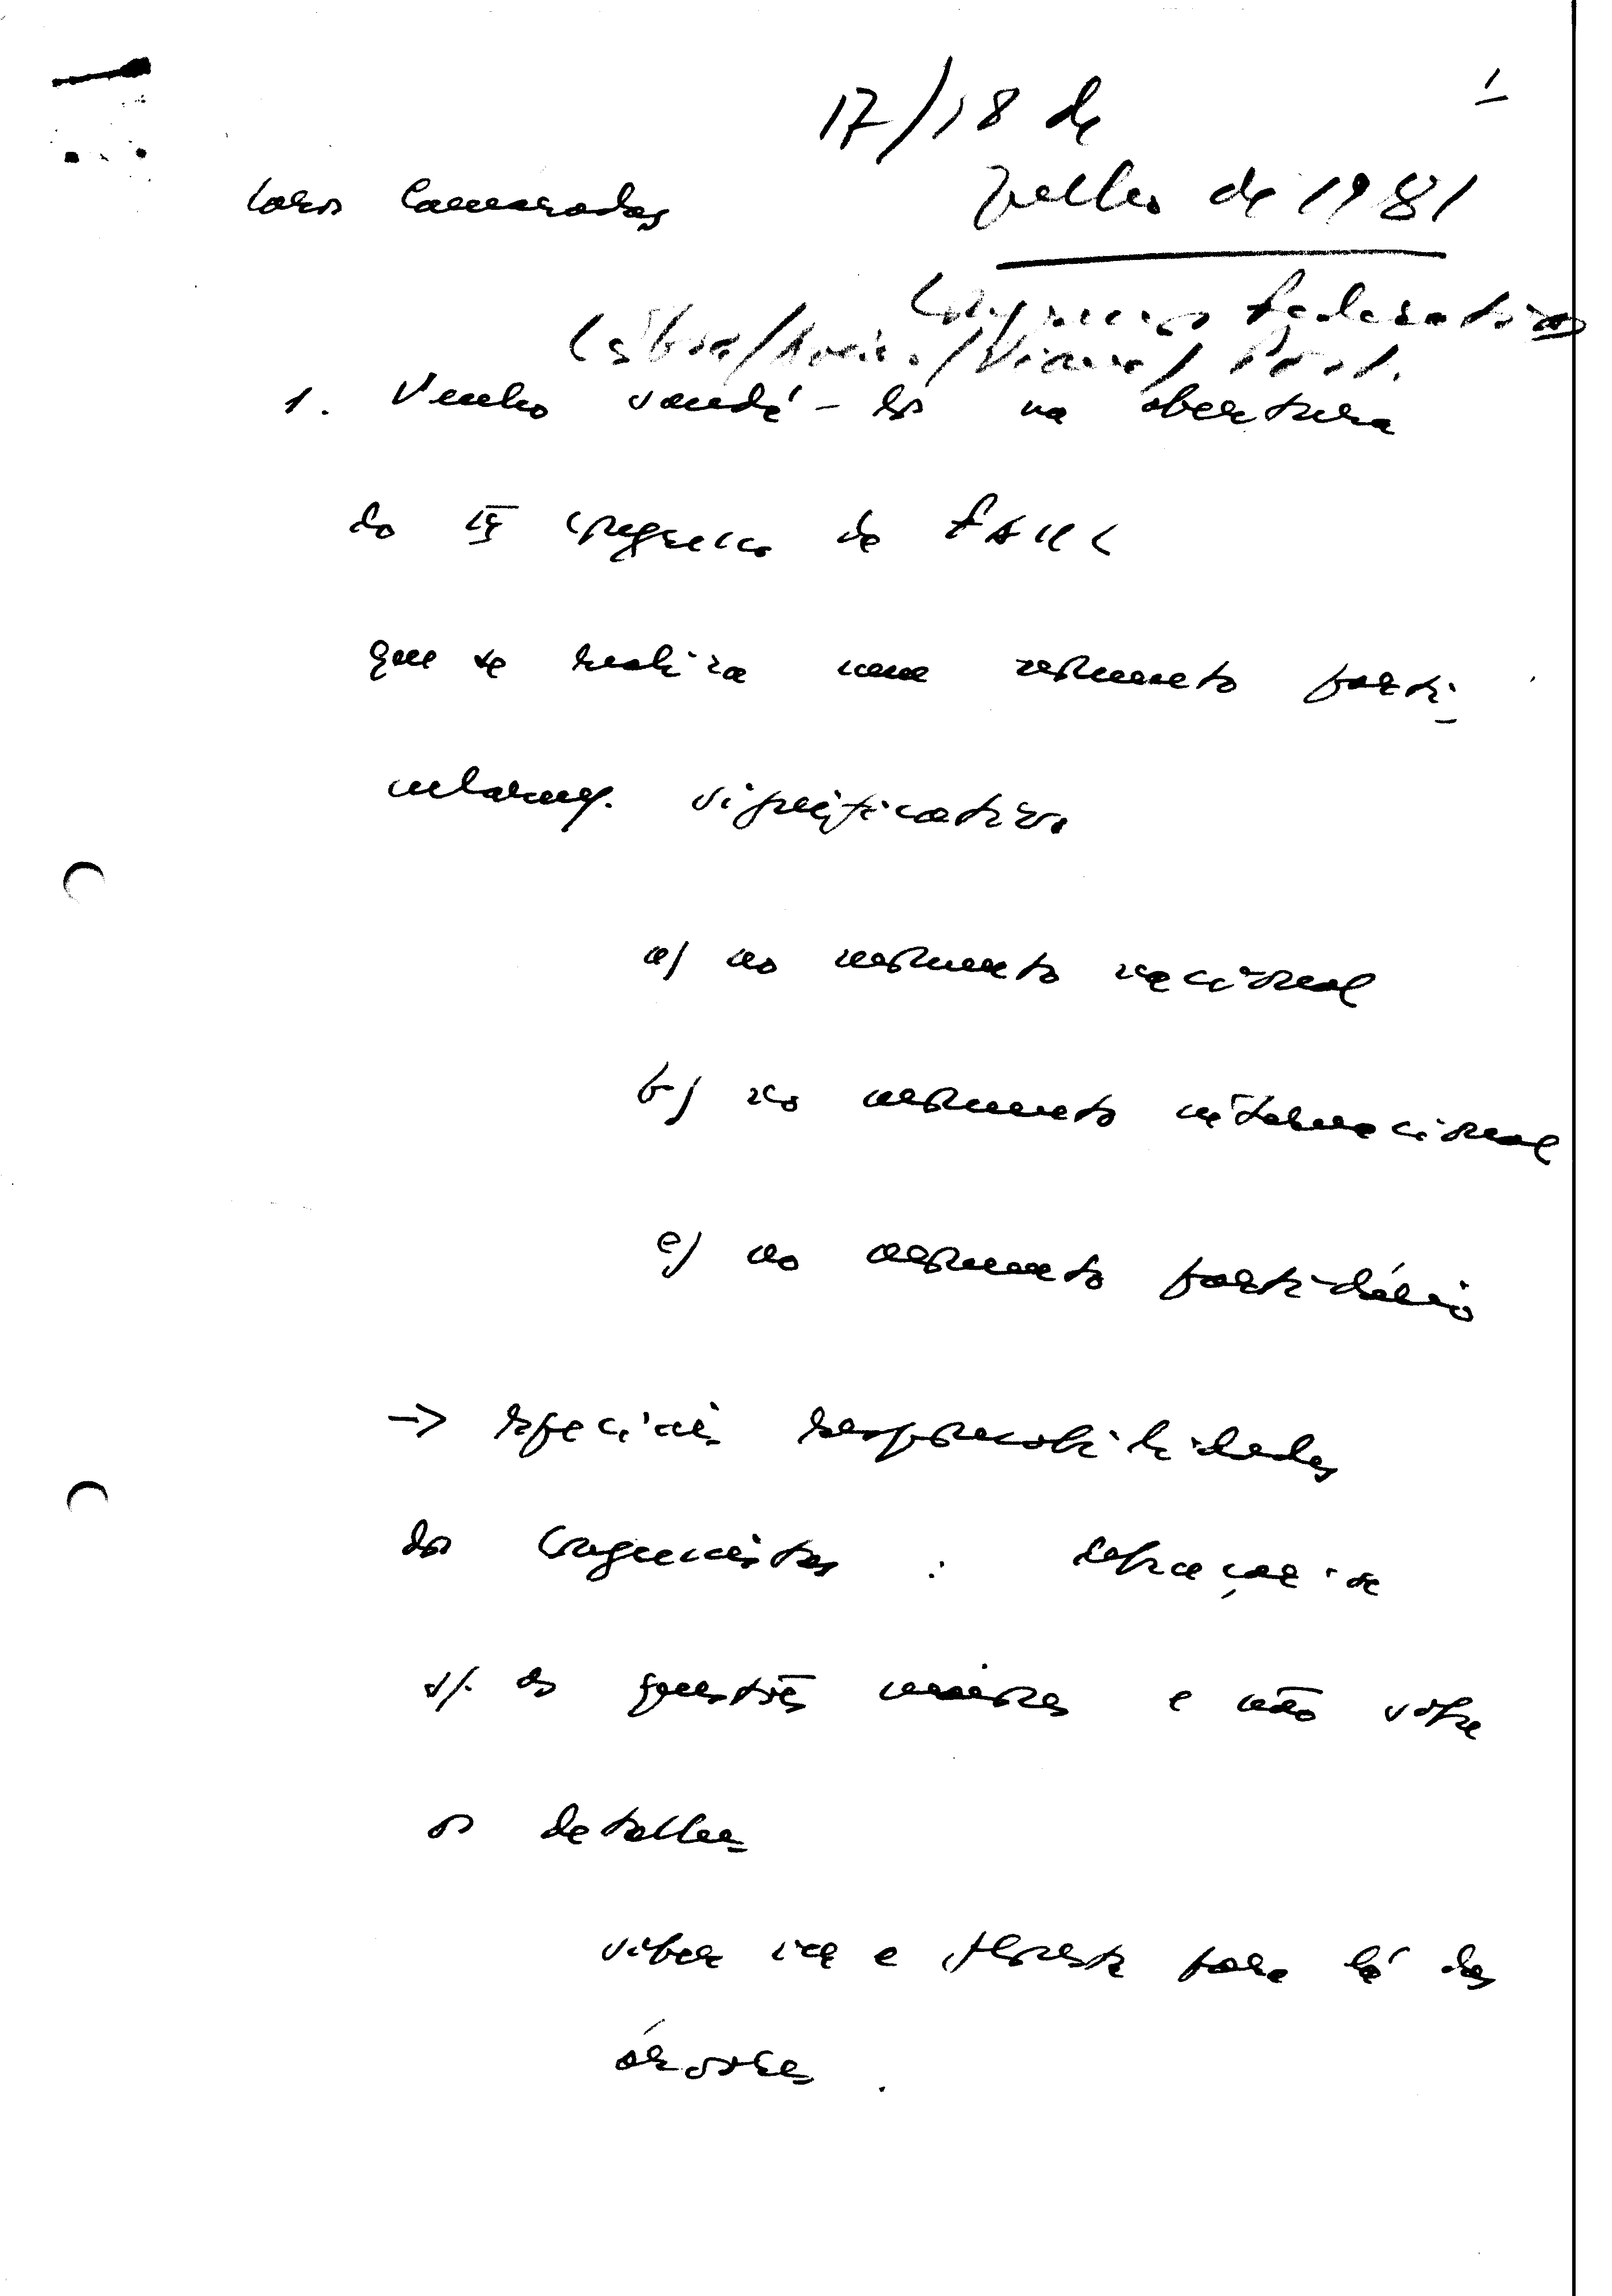 1
17/18 de
Julho de 1981
Caros Camaradas
Congressos Federativos
Lisboa/Aveiro/Viana/Port.
1. Venho saudá-los na abertura
do Congresso da FAUL
que se realiza num momento parti-
cularmₑ. significativo
a) no momento nacional
b) no momento internacional
c) no momento partidário
→ especiais responsabilidades
dos Congressistas : debruçar-se
s/. as questões maiores e não sobre
os detalhes
saber ver a floresta para lá das
árvores.